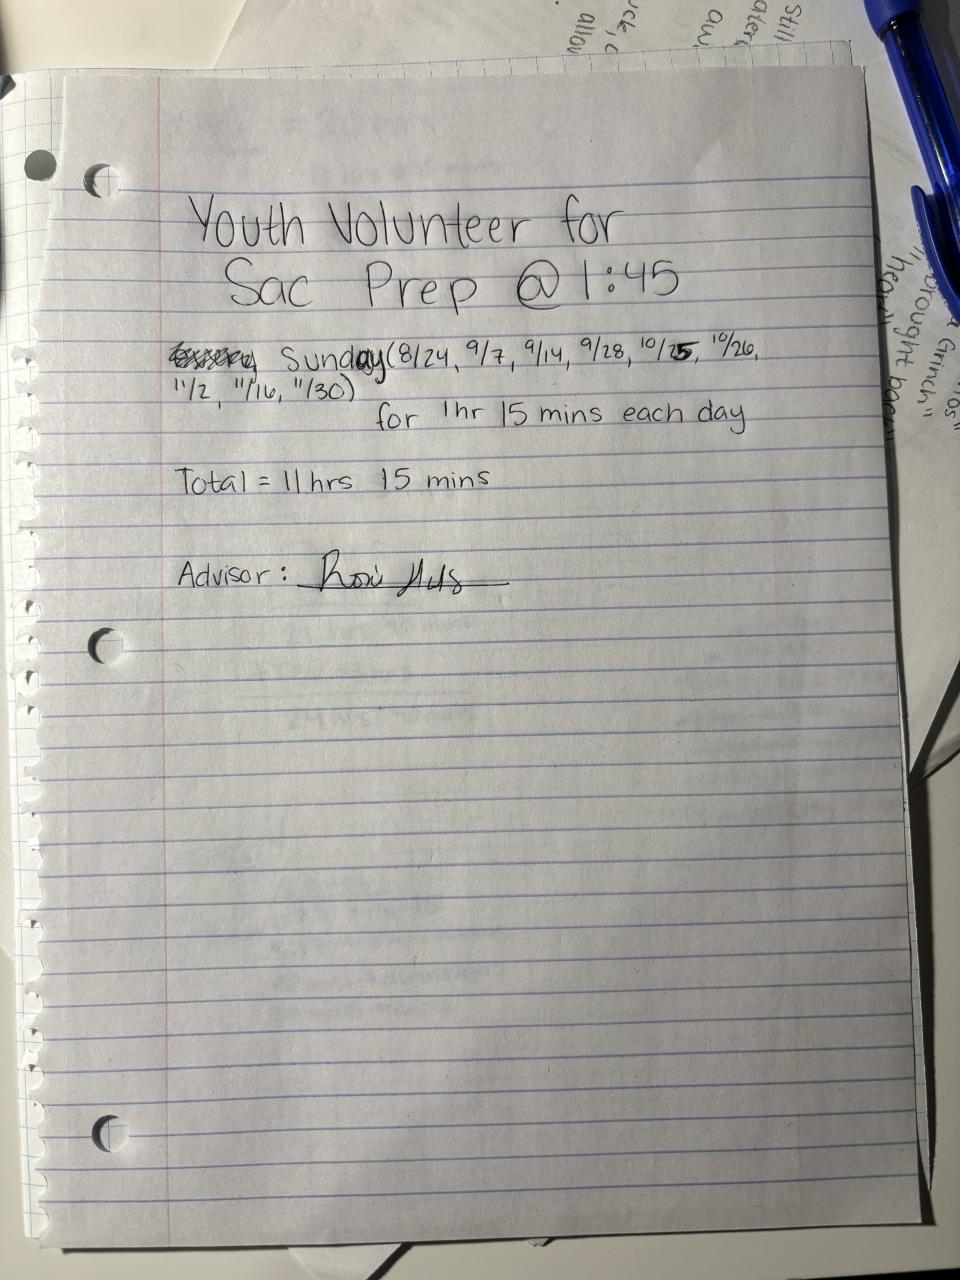 Youth Volunteer for
Sac Prep @ 1:45
Sunday (8/24, 9/7, 9/14, 9/28, 10/25, 10/26,
11/2, 11/16, 11/30)
for 1hr 15 mins each day
Total = 11 hrs 15 mins
Advisor:
Still
allow
Grinch"
brought back"